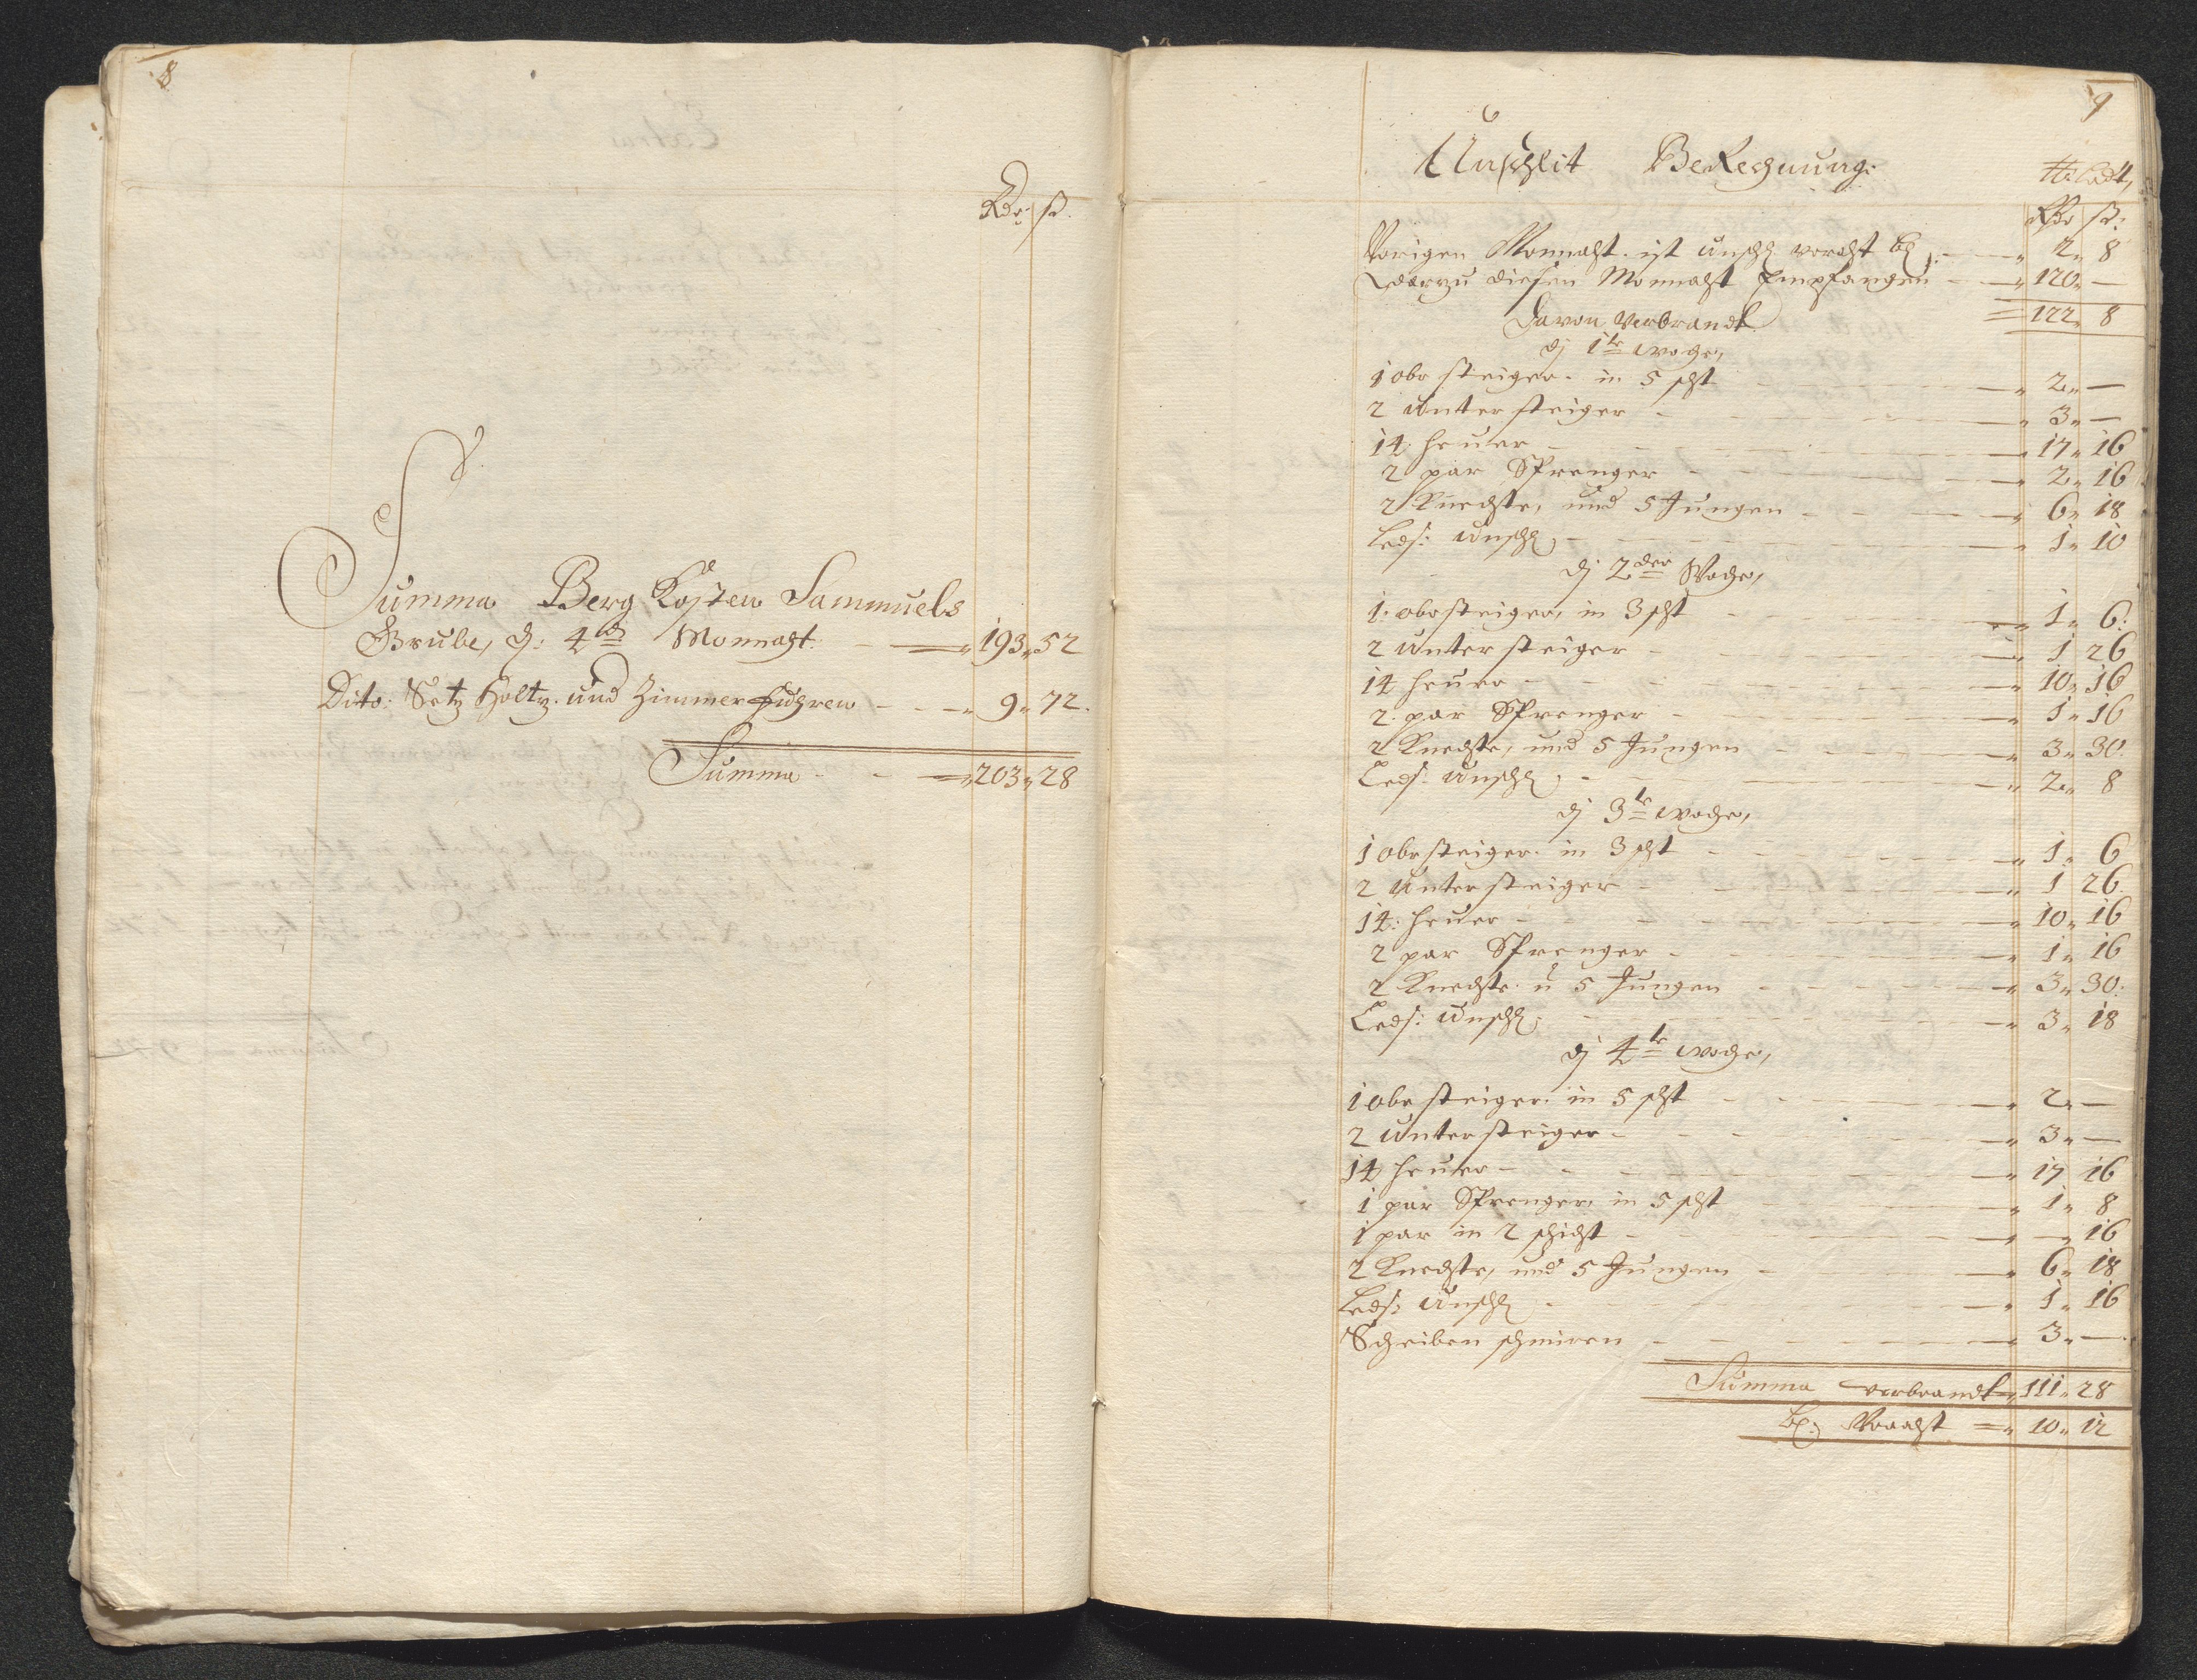 8
Rdr: ß.
Summa Berg Kosten Sammuels
Grube, d: 4t Monnaht. 193„52
Dito: Setz Holtz. und Zimmer fuhren 9„72.
Summa 203„28
9
Unschlit BeRechnung:
Rdr ß:
Vorigen Monnaht. ist unschl voraht bl: 2„ 8
Darzu diesen Monnaht Empfangen 120„ —
Davon Verbrandt 122„ 8
dj 1te woche,
1 obr steiger. in 5 scht 2„ —
2 unter steiger 3„ —
14 heuer 17„ 16
2 par Sprenger 2„ 16
2 Knechte, und 5 Jungen 6„ 18
Leds: unschl 1„ 10
dj 2der Woche,
1: obrsteiger, in 3 scht 1„ 6:
2 unter steiger 1 26
14 heuer 10„ 16
2. par Sprenger 1„ 16
2 Knechte, und 5 Jungen 3„ 30
Leds: unschl 2„ 8
dj 3te woche,
1 obr steiger. in 3 scht 1„ 6
2 unter steiger 1 26
14: heuer 10„ 16
2 par Sprenger 1„ 16
2 Knechte. u 5 Jungen 3„ 30:
Leds: unschl 3„ 18
dj 4te woche,
1 obr steiger. in 5 scht 2„ —
2 unter steiger 3„ —
14 heuer 17 16
1 par Sprenger, in 5 scht 1„ 8
1 par in 2 schicht — 16
2 Knechte, und 5 Jungen 6„ 18
Leds: unschl 1„ 16
Scheiben schmiren 3„ —
Summa verbrandt 111„ 28
bl: Voraht 10„ 12